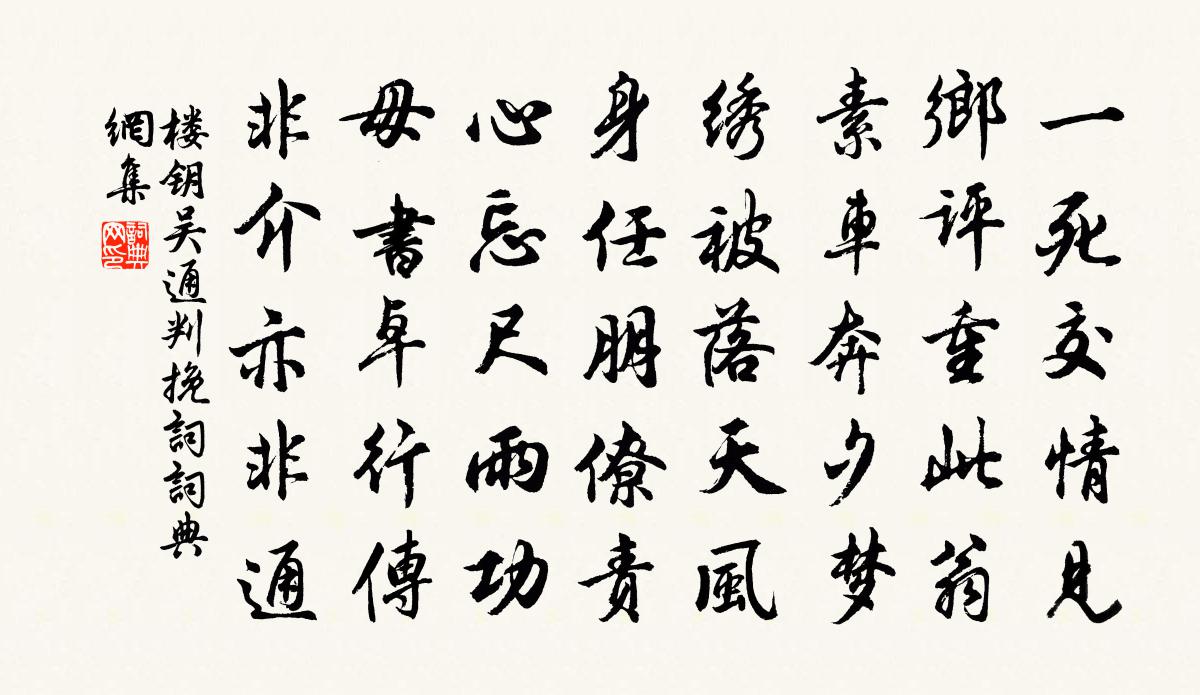 一死交情見
鄉評重此翁
素車奔夕梦
绣被落天風
身任朋僚責
心忘尺雨功
毋書卓行傳
非介亦非通
楼钥吴通判挽詞詞典
網集
詞典
网印